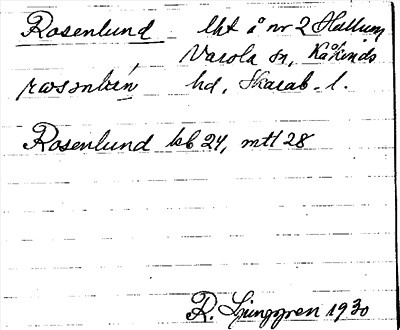 Rosenlund lht å nr 2 Hallum,
Varola sn, Kåkinds
hd, Skarab. l.
Rosenlund kb 24, mtl 28
R. Ljunggren 1930